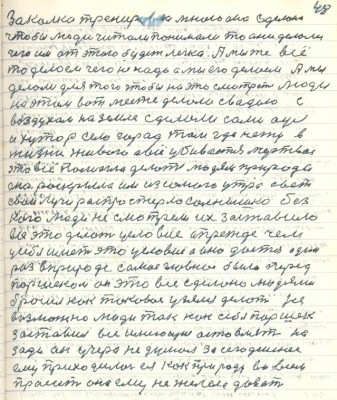 48
Закалка тренировка много она сделано
чтобы люди читали понимали то они делали
чего им от этого будет легка. А мы же всё
то делаем чего не надо а мы его делаем. А мы
делаем для того чтобы на это смотреть люди
на этом вот месте делаем свадьбу с
воздухом на земле сделали сами аул
и хутор село город там где нету в
жизни живого а всё убивается мертвое
это всё помогла делать людям природа
она раскрыла им из самого утра свет
свой лучи распростерло солнышко без
кого люди не смотрели их заставило
это делать условие а прежде чем
уметь это условие а оно даётся один
раз в природе самое главное было перед
паршеком он это всё сделано людями
бросил как таковое умеля делать
возможно люди так как себя паршек
заставил все имеющие оставлять на
зади он учера не думал за сегодняшнее
ему приходилося как природу во всем
просить она ему не жалела давать